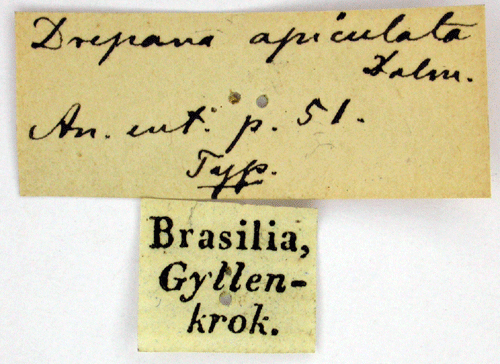 Drepana apiculata
Dalm.
An. ent. p. 51.
Typ.
Brasilia,
Gyllen-
krok.